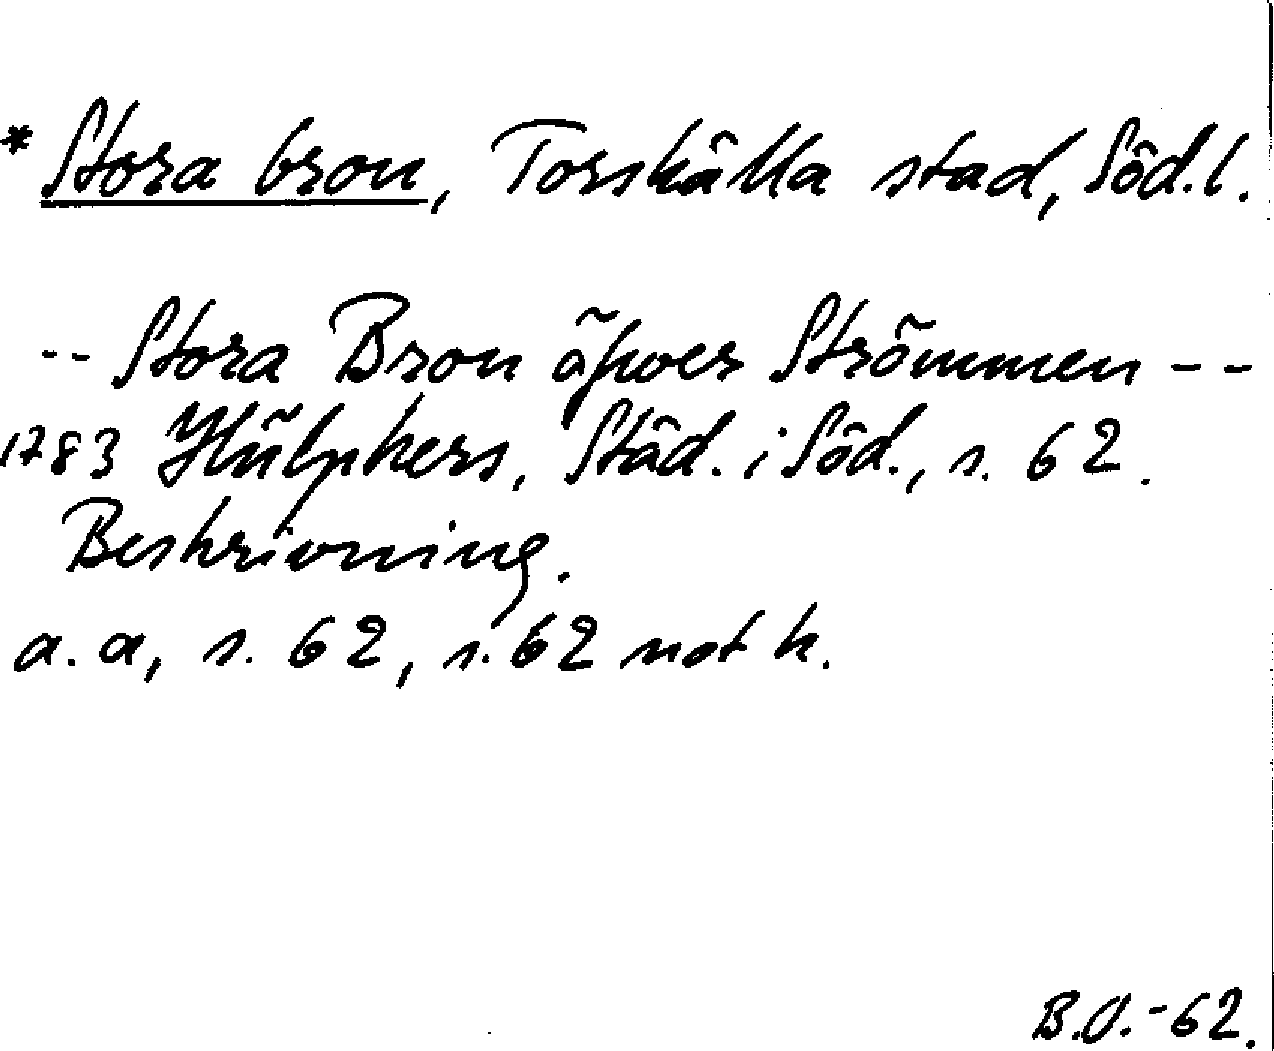 * Stora bron, Torshälla stad, Söd.l.
-- Stora Bron öfwer Strömmen --
1783 Hülphers, Städ. i Söd., s. 62.
Beskrivning.
a. a, s. 62, s. 62 not k.
B.O.-62.